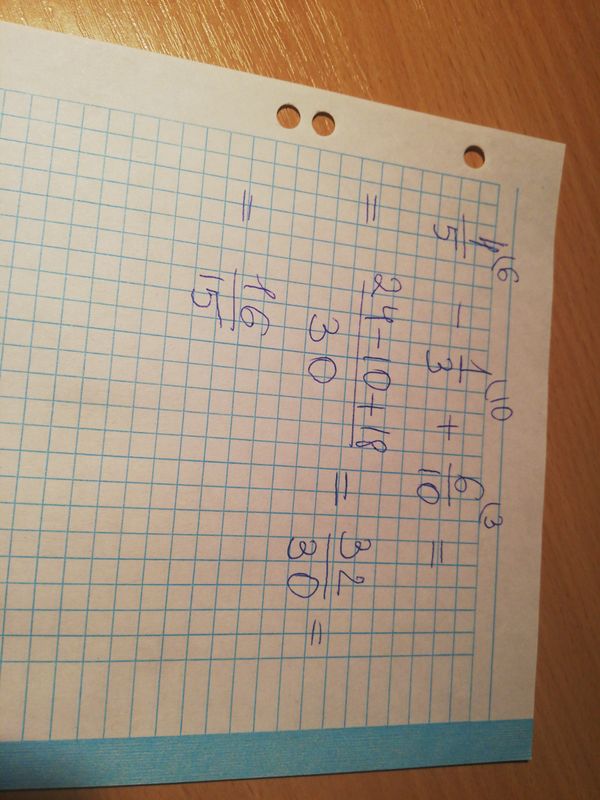 4/5 ⁽⁶ - 1/3 ⁽¹⁰ + 6/10 ⁽³ =
= (24-10+18)/30 = 32/30 =
= 16/15